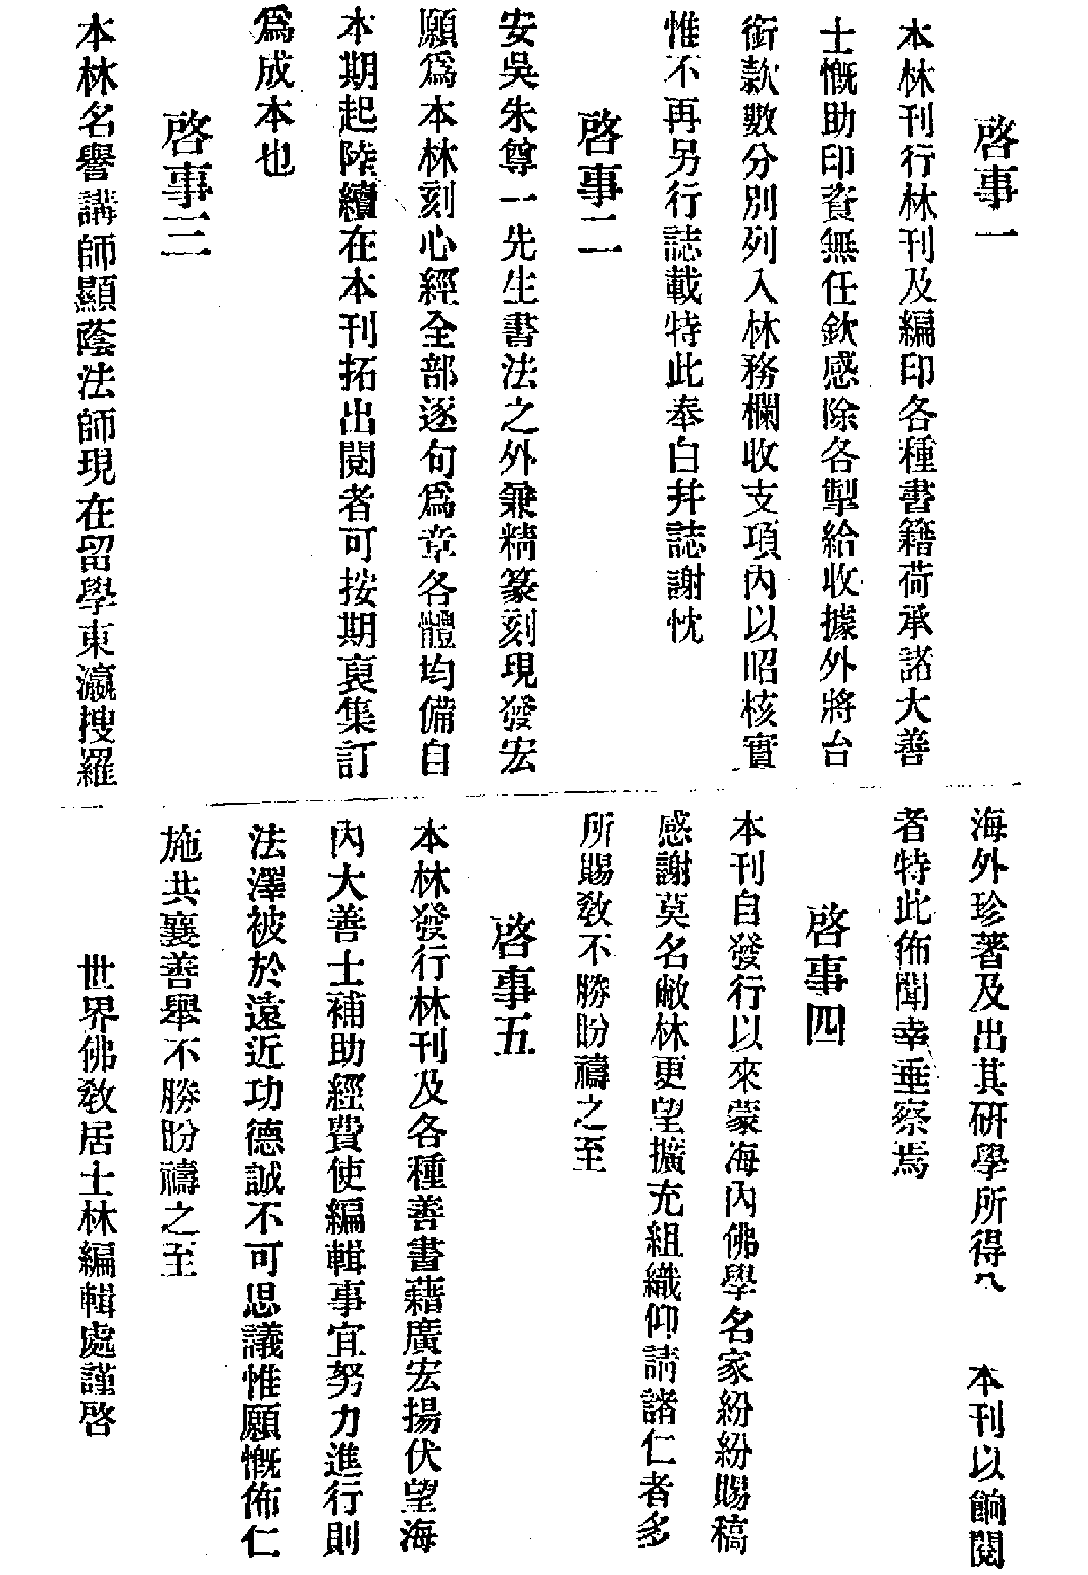 啓事一
本林刊行林刊及編印各種書籍荷承諸大善
士慨助印資無任欽感除各掣給收據外將台
銜款數分別列入林務欄收支項內以昭核實
惟不再另行誌載特此奉白幷誌謝忱
啓事二
安吳朱尊一先生書法之外兼精篆刻現發宏
願爲本林刻心經全部逐句爲章各體均備自
本期起陸續在本刊拓出閱者可按期裒集訂
爲成本也
啓事三
本林名譽講師顯蔭法師現在留學東瀛搜羅
海外珍著及出其硏學所得 本刊以餉閱
者特此佈聞幸垂察焉
啓事四
本刊自發行以來蒙海內佛學名家紛紛賜稿
感謝莫名敝林更望擴充組織仰請諸仁者多
所賜敎不勝盼禱之至
啓事五
本林發行林刊及各種善書藉廣宏揚伏望海
內大善士補助經費使編輯事宜努力進行則
法澤被於遠近功德誠不可思議惟願慨佈仁
施共襄善舉不勝盼禱之至
世界佛敎居士林編輯處謹啓